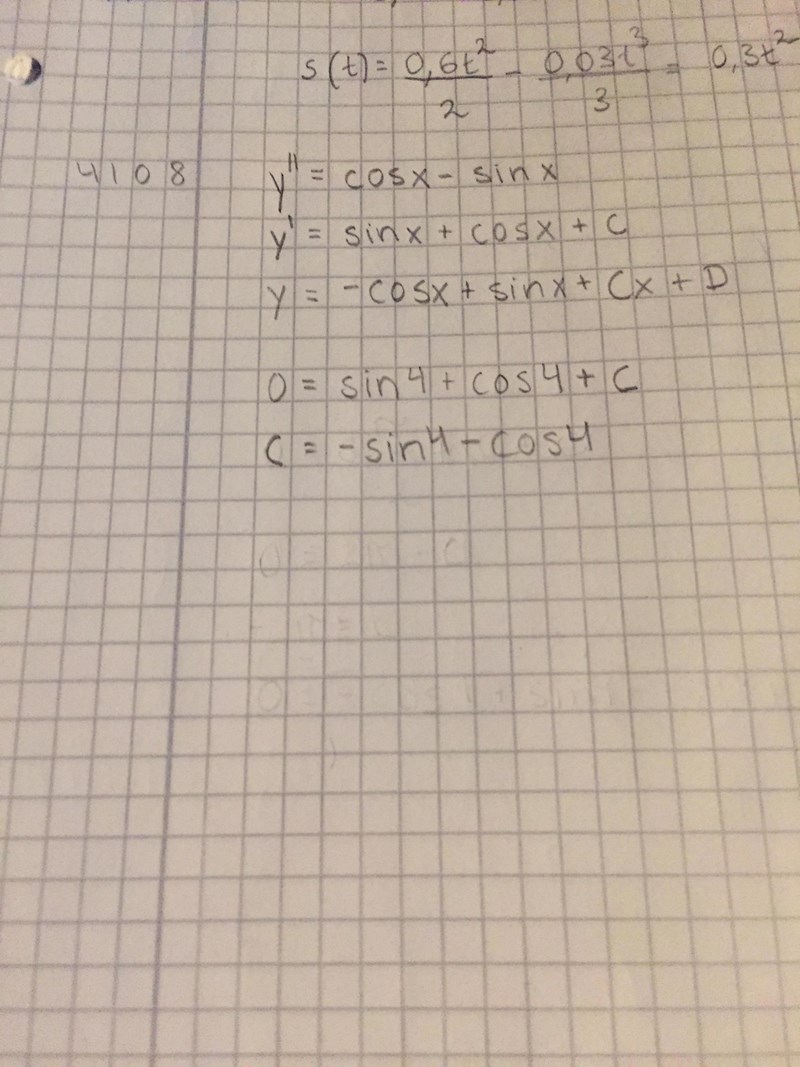 s(t) = 0,6t²/2 - 0,03t³/3 = 0,3t²
4108 y'' = cosx - sinx
y' = sinx + cosx + C
y = -cosx + sinx + Cx + D
0 = sin4 + cos4 + C
C = -sin4 - cos4